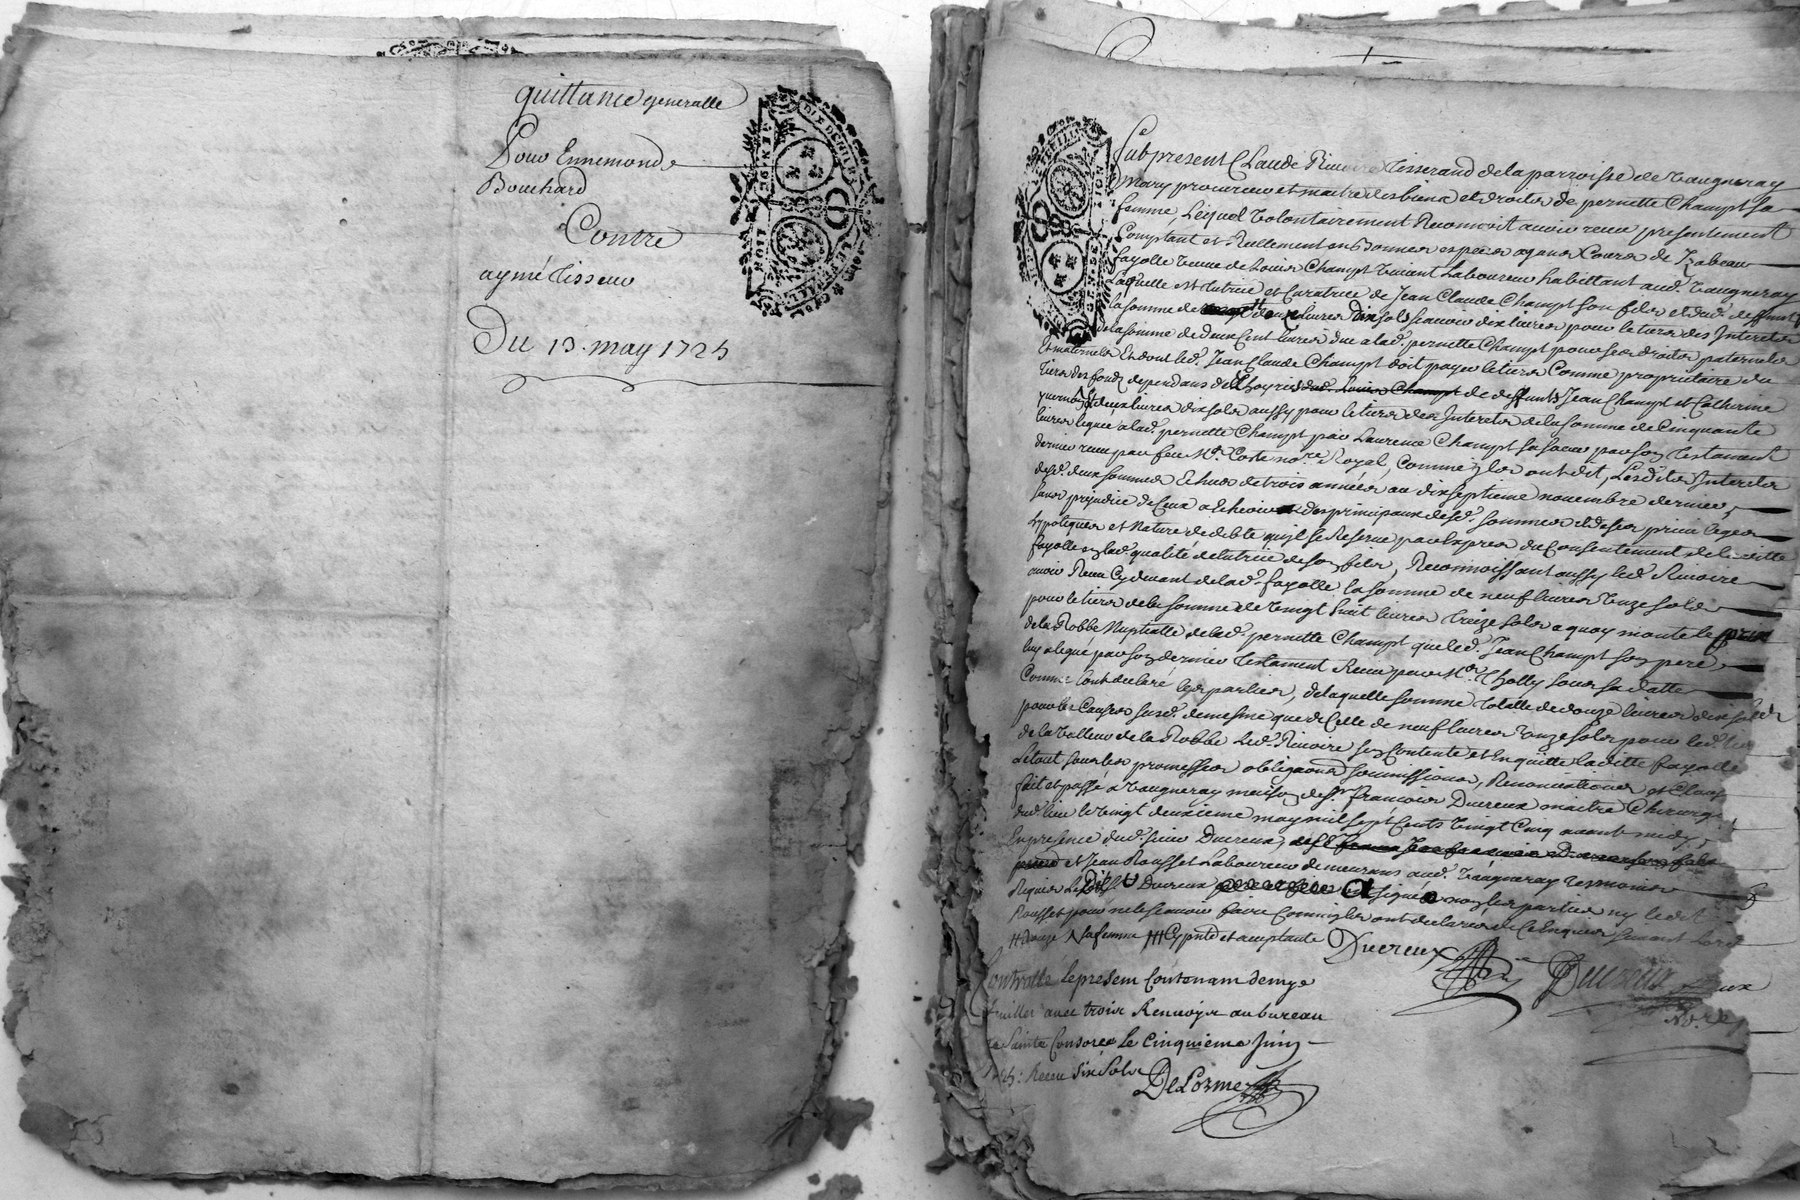 quittance generalle
Pour Ennemonde
Bouchard
Contre
aymé Tisseur
Du 13 may 1725
Fut present Claude Rivoire Tisserand de la parroisse de Vaugneray
Mary procureur et maitre des biens et droits de pernette Champt sa
femme Lequel volontairement Reconnoit avoir receu presentement
Comptant et Reellement en Bonnes especes ayans Cours de Izabeau
fayolle veuve de Louis Champt vivant Laboureur habittant aud. Vaugneray
Laquelle est tutrice et Curatrice de Jean Claude Champt son fils et dud. deffunt
la somme de livres dix sols scavoir dix livres pour le tiers des Interets
de la somme de deux Cent livres due a lad. pernette Champt pour ses droits paternels
Et maternels Et dont led. Jean Claude Champt doit payer le tiers Comme proprietaire du
tiers des fonds dependans de de deffunts Jean Champt et Catherine
et deux livres dix sols aussy pour le tiers des Interets de la somme de Cinquante
livres leguée a lad. pernette Champt par Laurence Champt sa soeur par son Testament
dernier receu par feu Me. Coste nore. Royal, Comme ils ont dit, Lesdits Interets
desd. deux sommes Echus de trois années au dix septieme novembre dernier,
sans prejudice de Ceux a Echeoir des principaux desd. sommes et de ses privileges
hypoteques et Nature de debte qu'il se Reserve par Exprez du Consentement de laditte
fayolle en lad. qualité de tutrice de son fils, Reconnoissant aussy led. Rivoire
avoir Receu Cy devant de lad. fayolle la somme de neuf livres Unze sols
pour le tiers de la somme de Vingt huit livres Treize sols a quoy monte le prix
de la Robbe Nuptialle de lad. pernette Champt que led. Jean Champt son pere
luy a legué par son dernier Testament Receu par Me. Tholly sous sa datte
Comme l'ont declaré les parties, de laquelle somme totalle de douze livres dix sols
pour les Causes susd. de mesme que de Celle de neuf livres Unze sols pour led. tiers
de la Valleur de la Robbe Led. Rivoire se Contente et En quitte laditte fayolle
Le tout sous les promesses obligaons soumissions, Renonciations et Claus
fait et passé a Vaugneray maison de Sr. François Ducreux maitre Chirurg
dud. lieu le Vingt deuxieme may mil sept Cents Vingt Cinq avant midy
En presence dud. sieur Ducreux,
et Jean Rousset Laboureur demeurans aud. Vaugneray temoins
Requis Ledit Sr Ducreux a signé non les parties ny ledit
Rousset pour ne le scavoir faire Comme ils ont declaré de Ce Enquis suivant Lord
# douze # sa femme ### Cy pnte et acceptante Ducreux
Ducreux
Nore.
Controllé le present Contenant demye
feuille avec trois Renvoys au bureau
de Sainte Consorce Le Cinquieme Juin
Receu Six Sols
DeLorme